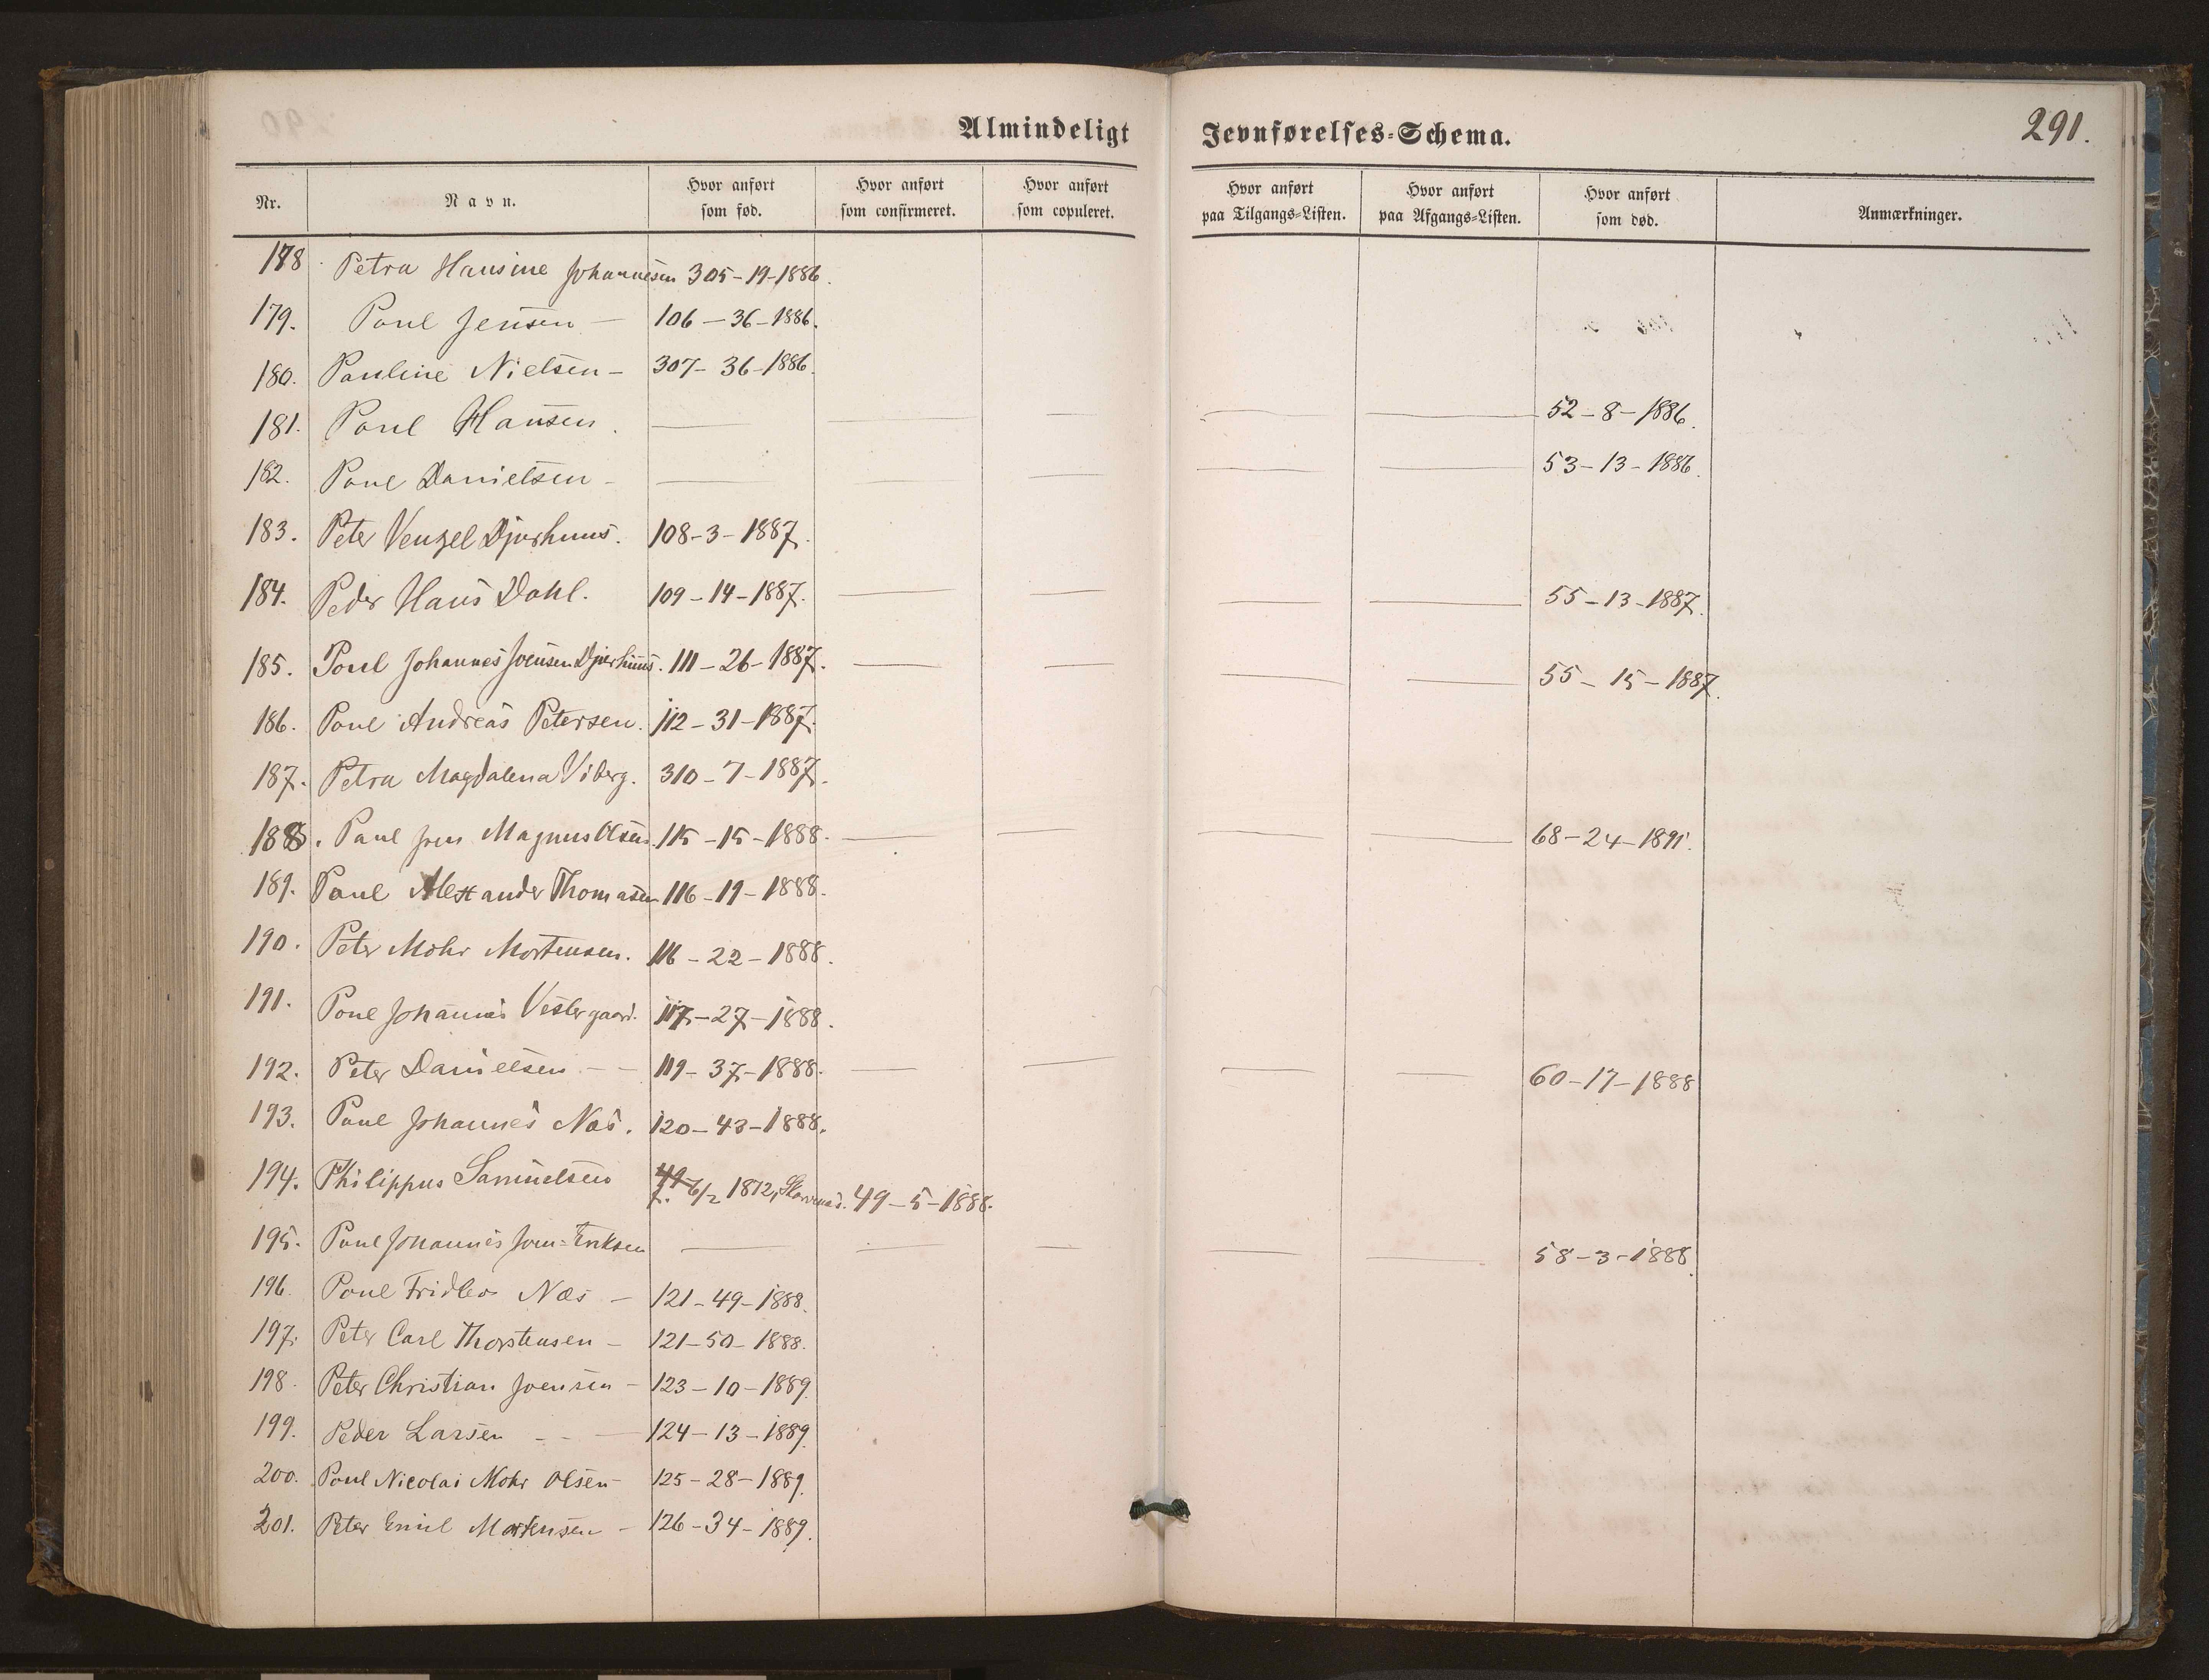 Almindeligt Jevnførelses=Schema. 291.
Nr. Navn. Hvor anført som fød. Hvor anført som confirmeret. Hvor anført som copuleret. Hvor anført paa Tilgangs=Listen. Hvor anført paa Afgangs=Listen. Hvor anført som død. Anmærkninger.
178 Petra Hansine Johannesen 305-19-1886.
179. Poul Jensen — 106-36-1886.
180. Pauline Nielsen — 307-36-1886.
181. Poul Hansen. — — — — — 52-8-1886.
182. Poul Danielsen — — — — — 53-13-1886.
183. Peter Venzel Djurhuus. 108-3-1887.
184. Peder Hans Dahl. 109-14-1887. — — — — 55-13-1887.
185. Poul Johannes Joensen Djurhuus. 111-26-1887. — — — — 55-15-1887.
186. Poul Andreas Petersen. 112-31-1887.
187. Petra Magdalena Viberg. 310-7-1887.
188. Paul Jens Magnus Olsen. 115-15-1888. — — — — 68-24-1891.
189. Poul Alexander Thomasen 116-19-1888.
190. Peter Mohr Mortensen. 116-22-1888.
191. Poul Johannes Vestergaard. 117-27-1888.
192. Peter Danielsen — — 119-37-1888. — — — — 60-17-1888
193. Poul Johannes Næs. 120-43-1888.
194. Philippus Samuelsen f. 6/2 1872, 49-5-1888.
195. Poul Johannes Joen=Eriksen — — — — — 58-3-1888.
196. Poul Fridleo Næs — 121-49-1888.
197. Peter Carl Thorstensen — 121-50-1888.
198. Peter Christian Joensen — 123-10-1889.
199. Peder Larsen — — 124-13-1889.
200. Poul Nicolai Mohr Olsen — 125-28-1889.
201. Peter Emil Mortensen — 126-34-1889.